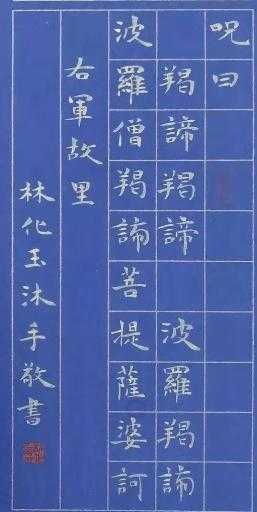 呪曰
羯諦羯諦 波羅羯諦
波羅僧羯諦菩提薩婆訶
右軍故里
林化玉沐手敬書